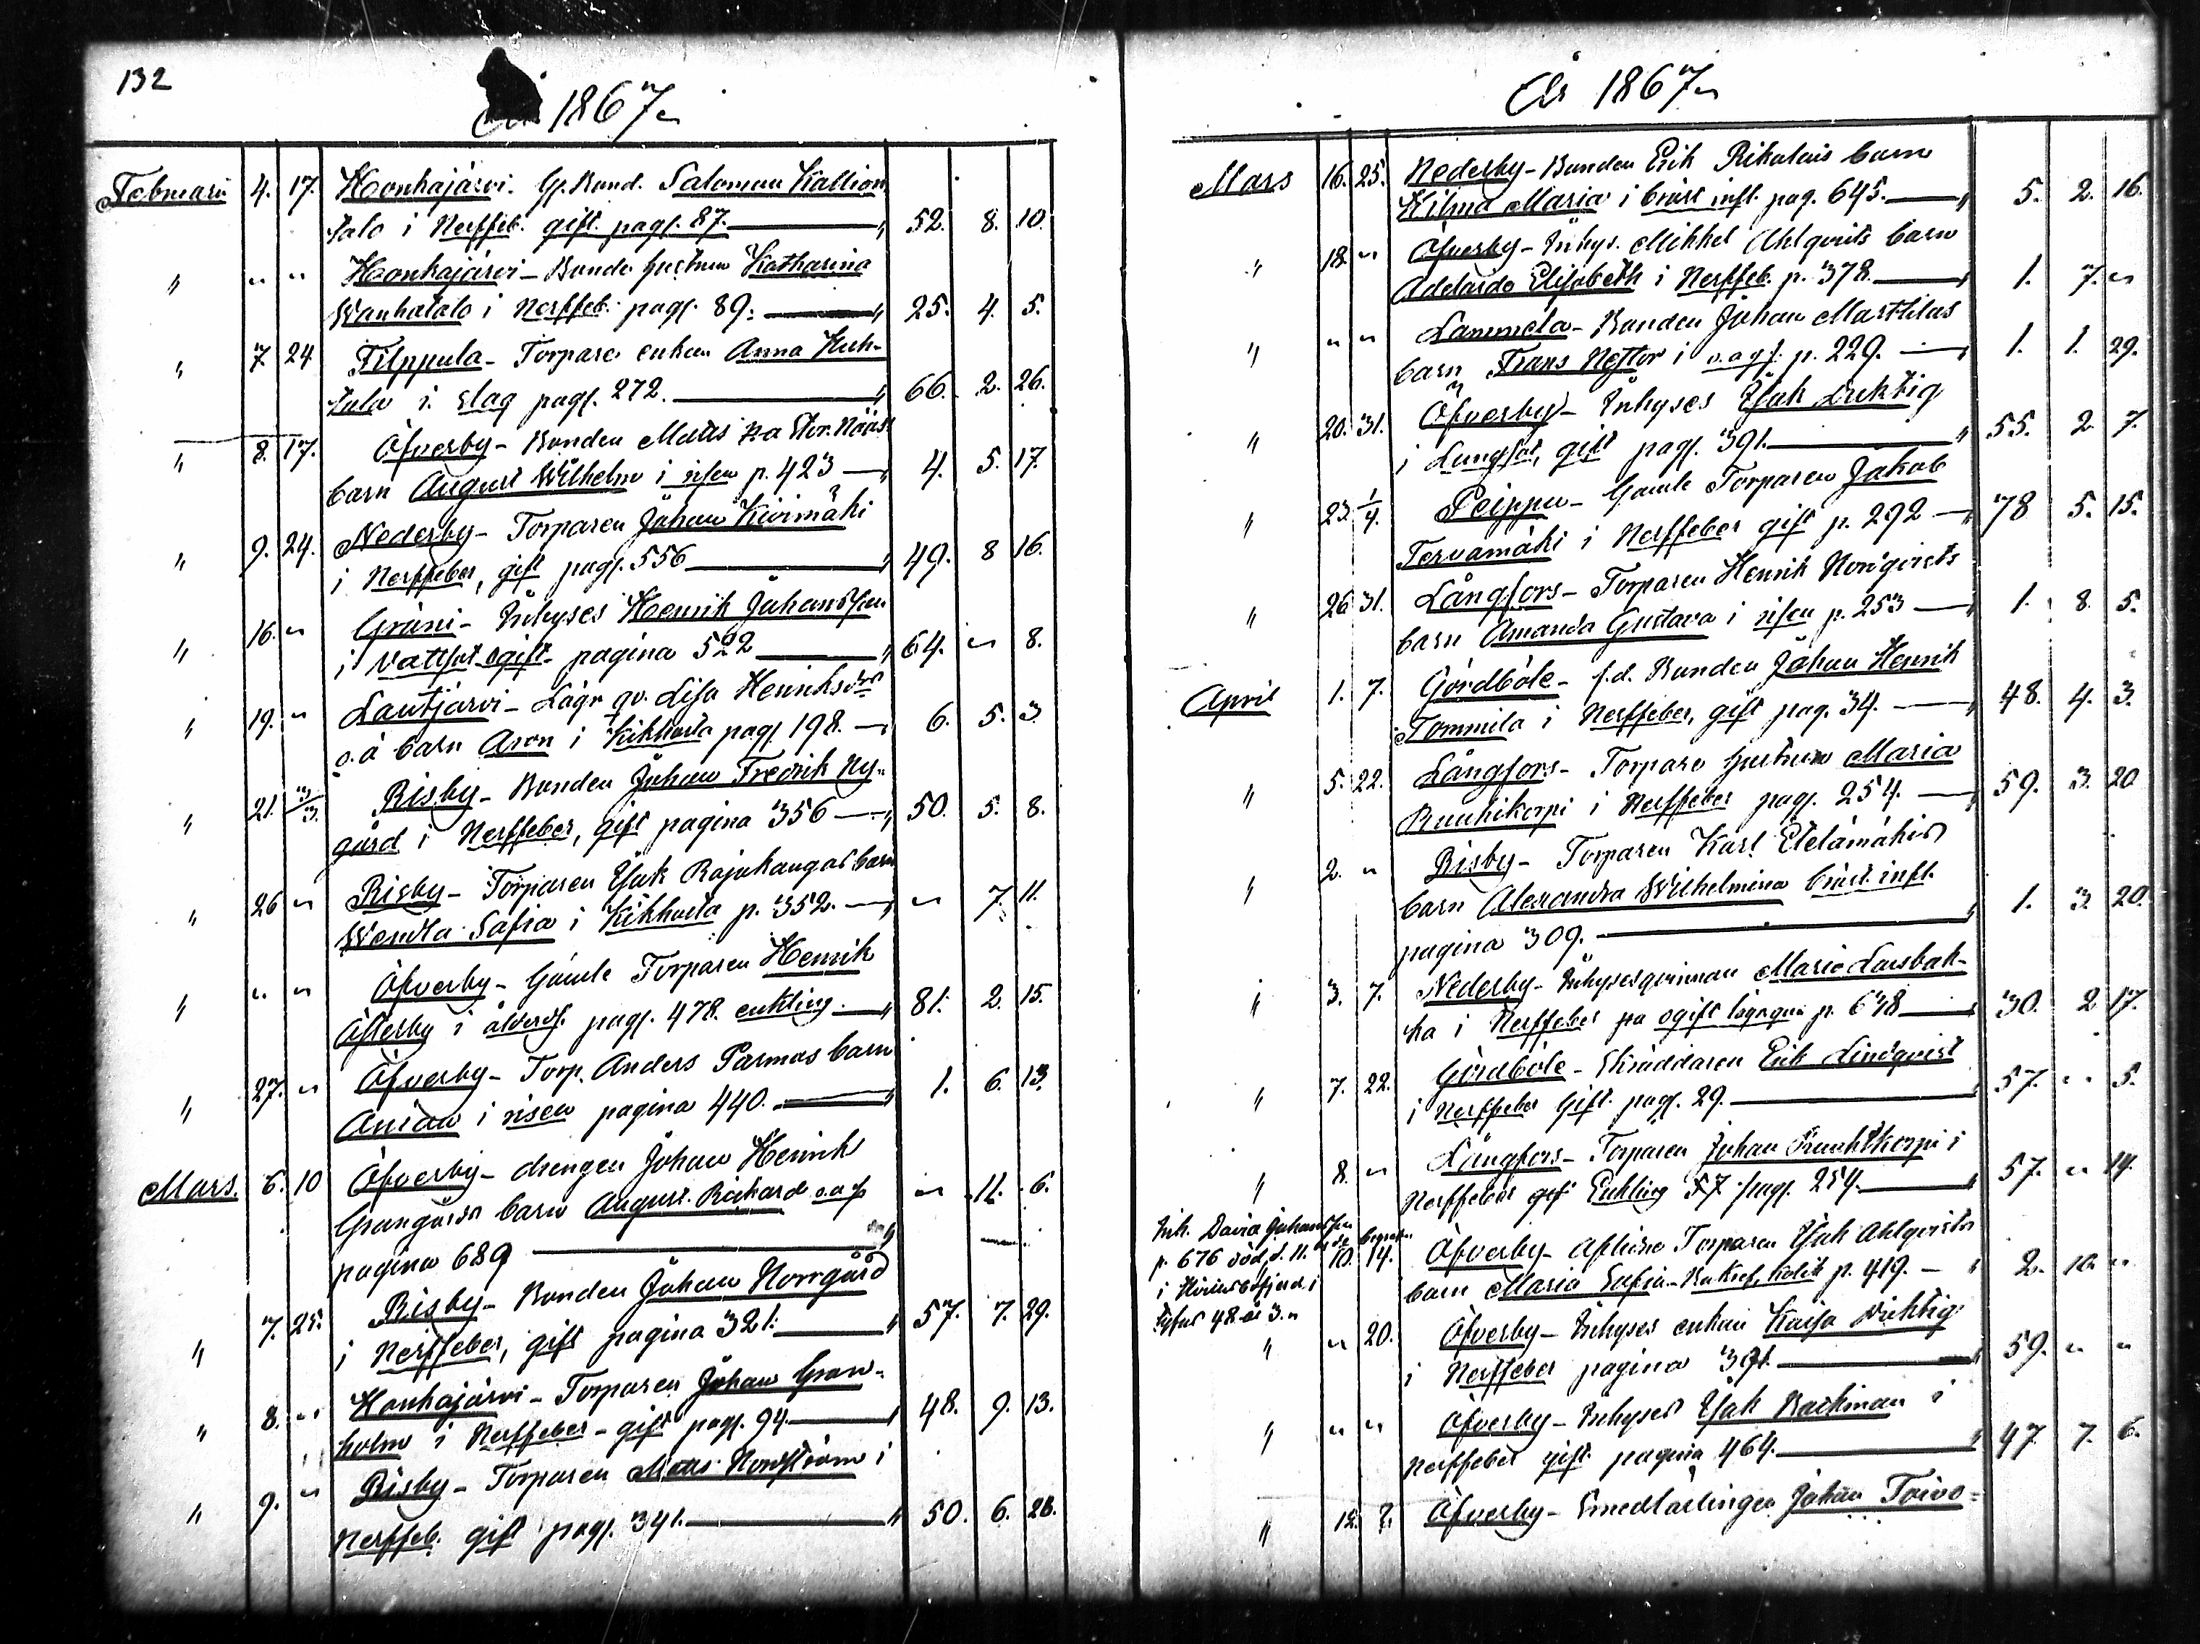 132
År 1867
Februari 4. 17. Honkajärvi. G. Bond. Salomon Kallion
talo i Nerffeb. gift. pagf. 87. 52. 8. 10.
" " " Honkajärvi - Bonde hustrun Katharina
Wanhatalo i Nerffeb. pagf. 89. 25. 4. 5.
" 7 24 Filppula - Torpare enkan Anna Huh-
tala i slag pagf. 272. 66. 2. 26.
" 8. 17. Öfverby - Bonden Matts
barn August Wilhelm i p. 423 4. 5. 17.
" 9. 24. Nederby - Torparen Johan Kivimäki
i Nerffeber, gift pagf. 556 49. 8 16.
" 16. " Gräni - Inhyses Henrik Johansson
i Vattsot ogift pagina 522 64. " 8.
" 19. " Lautjärvi - Lägr qv. Lisa Henriksdr
o.ä barn Aron i Kikhosta pagf 198. 6. 5. 3.
" 21. 3/3. Risby - Bonden Johan Fredrik Ny-
gård i Nerffeber, gift pagina 356 50. 5. 8.
" 26 " Risby - Torparen Isak Rajakangas barn
Wendla Safia i Kikhosta p. 352. " 7. 11.
" " " Öfverby - Gamle Torparen Henrik
Öfterby i ålderdf. pagf. 478. enkling. 81. 2. 15.
" 27. " Öfverby - Torp. Anders Parmas barn
i pagina 440. 1. 6. 13.
Mars. 6. 10 Öfverby - drengen Johan Henrik
Grangårds barn August Richard
pagina 689 " 11. 6.
" 7. 25. Risby - Bonden Johan Norrgård
i Nerffeber, gift pagina 321. 57. 7. 29.
" 8. " Honkajärvi - Torparen Johan Gran-
holm i Nerffeber - gift pagf. 94 48. 9. 13.
" 9. " Risby - Torparen Matts Nordström i
Nerffeb. gift pagf. 341. 50. 6. 28.
År 1867
Mars 16. 25. Nederby - Bonden Erik Rikalais barn
Hilma Maria i bröst infl. pag. 645. 5. 2. 16.
" 18 " Öfverby - Inhys. Mikkel Ahlqvists barn
Adelaide Elisabeth i Nerffeb. p. 378. 1. 7. "
" " " Lammela - Bonden Johan Marttilas
barn Frans Nestor i p. 229. 1. 1. 29.
" 20. 31. Öfverby - Inhyses Isak Duktig
i Lungsot, gift pagf. 391. 55. 2 7.
" 23. 1/4. Peippu - Gamle Torparen Jakob
Tervamäki i Nerffeber gift p. 292 78 5. 15.
" 26 31. Långfors - Torparen Henrik Norrqvists
barn Amanda Gustava i p. 253 1. 8. 5.
April 1. 7. Gördböle - f.d. Bonden Johan Henrik
Tommila i Nerffeber, gift pag. 34. 48. 4. 3.
" 5. 22. Långfors - Torpare hustrun Maria
Ruuhikorpi i Nerffeber pagf. 254. 59. 3. 20
" 2. " Risby - Torparen Karl Etelämäkis
barn Alexandra Wilhelmina bröst. infl.
pagina 309. 1. 3. 20.
" 3. 7. Nederby - Inhysesqvinnan Maria Larsbak-
ka i Nerffeber pa ogift p. 638 30. 2 17.
" 7. 22. Gördböle - Skräddaren Erik Lindqvist
i Nerffeber Gift. pagf. 29. 57. " 5.
" 8. " Långfors - Torparen Johan Ruuhikorpi i
Nerffeber Enkling 57 pagf. 254. 57. " 14.
Inh. David Johansson
p. 676 död d. 11.
i
48 år 3. "
10. 14. Öfverby - Torparen Isak Ahlqvists
barn Maria Safia p. 419. 2. 10. "
" " 20. Öfverby - Inhyses enkan Kaisa Duktig
i Nerffeber pagina 391. 59. " "
" " " Öfverby - Inhyses Isak Backman i
Nerffeber gift pagina 464. 47 7. 6.
" 12. Öfverby - Smedlärlingen Johan Toivo-